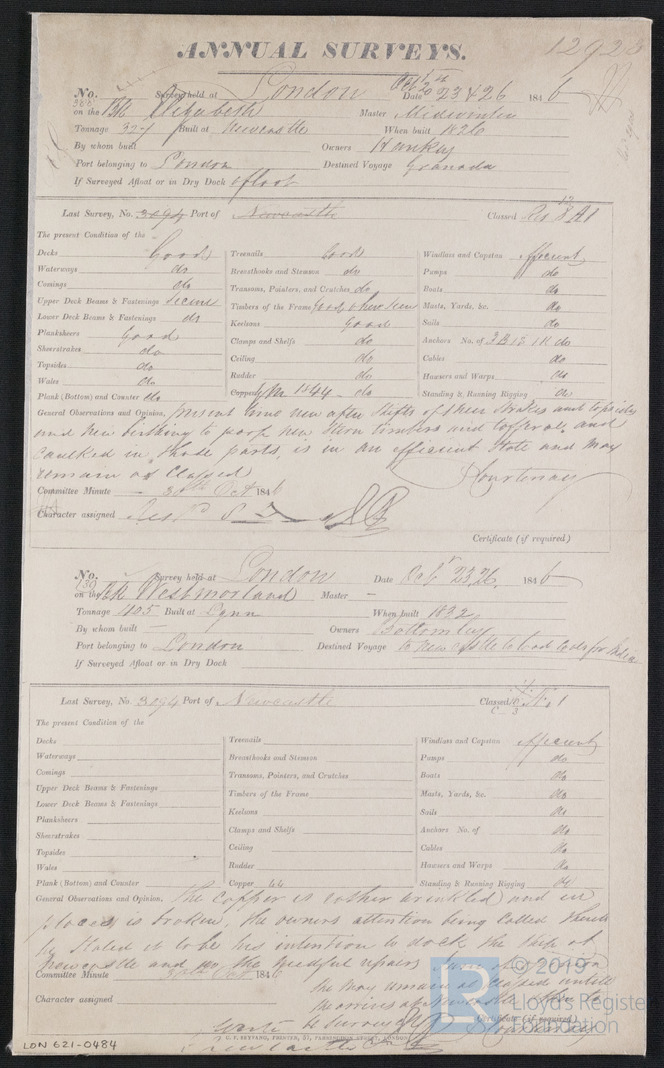 ANNUAL SURVEYS.
No. Survey held at London Date 23 & 26 1846
on the Bk Elizabeth Master
Tonnage 327 Built at Newcastle When built 1826
By whom built Owners Hankey
Port belonging to London Destined Voyage Granada
If Surveyed Afloat or in Dry Dock afloat
Last Survey, No. 3094 Port of Newcastle Classed A1
The present Condition of the
Decks Good Treenails Good Windlass and Capston efficient
Waterways do Breasthooks and Stemson do Pumps do
Comings do Transoms, Pointers, and Crutches do Boats do
Upper Deck Beams & Fastenings Secure Timbers of the Frame good where seen Masts, Yards, &c. do
Lower Deck Beams & Fastenings do Keelsons good Sails do
Planksheers Good Clamps and Shelfs do Anchors No. of 3 B 1 S 1 K do
Sheerstrakes do Ceiling do Cables do
Topsides do Rudder do Hawsers and Warps do
Wales do Copper 1844 do Standing & Running Rigging do
Plank (Bottom) and Counter do
General Observations and Opinion, present some new after shifts of sheer strakes and topsides
and new birthing to poop new stern timbers and tafferal, and
caulked in those parts, is in an efficient state and may
remain as classed
Courtenay
Committee Minute 30th Oct 1846
Character assigned
Certificate (if required)
No. Survey held at London Date Octr 23.26. 1846
130
on the Bk Westmorland Master –
Tonnage 405 Built at Lynn When built 1832
By whom built – Owners Bottomley
Port belonging to London Destined Voyage to Newcastle to load coals for India
If Surveyed Afloat or in Dry Dock
Last Survey, No. 3094 Port of Newcastle Classed 1
The present Condition of the
Decks Treenails Windlass and Capston efficient
Waterways Breasthooks and Stemson Pumps do
Comings Transoms, Pointers, and Crutches Boats do
Upper Deck Beams & Fastenings Timbers of the Frame Masts, Yards, &c. do
Lower Deck Beams & Fastenings Keelsons Sails do
Planksheers Clamps and Shelfs Anchors No. of do
Sheerstrakes Ceiling Cables do
Topsides Rudder Hawsers and Warps do
Wales Copper 44 Standing & Running Rigging do
Plank (Bottom) and Counter
General Observations and Opinion, The copper is rather wrinkled and in
places is broken, the owners attention being called thereto
he stated it to be his intention to dock the ship at
Newcastle and do the needful repairs
Committee Minute 30th Oct 1846
she may remain as classed until
she arrives at Newcastle
Character assigned
Certificate (if required)
Write to Surveyors
Newcastle
PRINTER, LONDON
LON 621-0484
© 2019
Lloyd's Register
Foundation